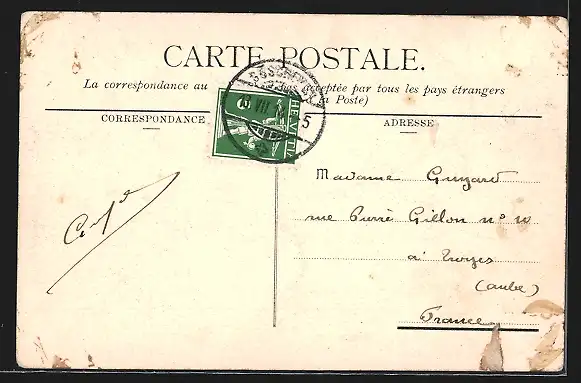 CARTE POSTALE.
La correspondance au acceptée par tous les pays étrangers
la Poste)
CORRESPONDANCE
ADRESSE
HELVETIA
VII
5
Madame Guyard
rue Pierre Gillon n° 10
à Troyes
(aube)
France